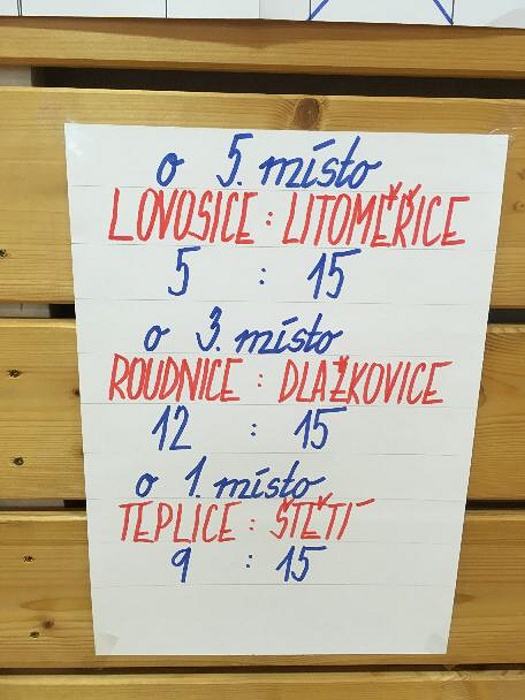 o 5. místo
LOVOSICE : LITOMĚŘICE
5 : 15
o 3. místo
ROUDNICE : DLAŽKOVICE
12 : 15
o 1. místo
TEPLICE : ŠTĚTÍ
9 : 15